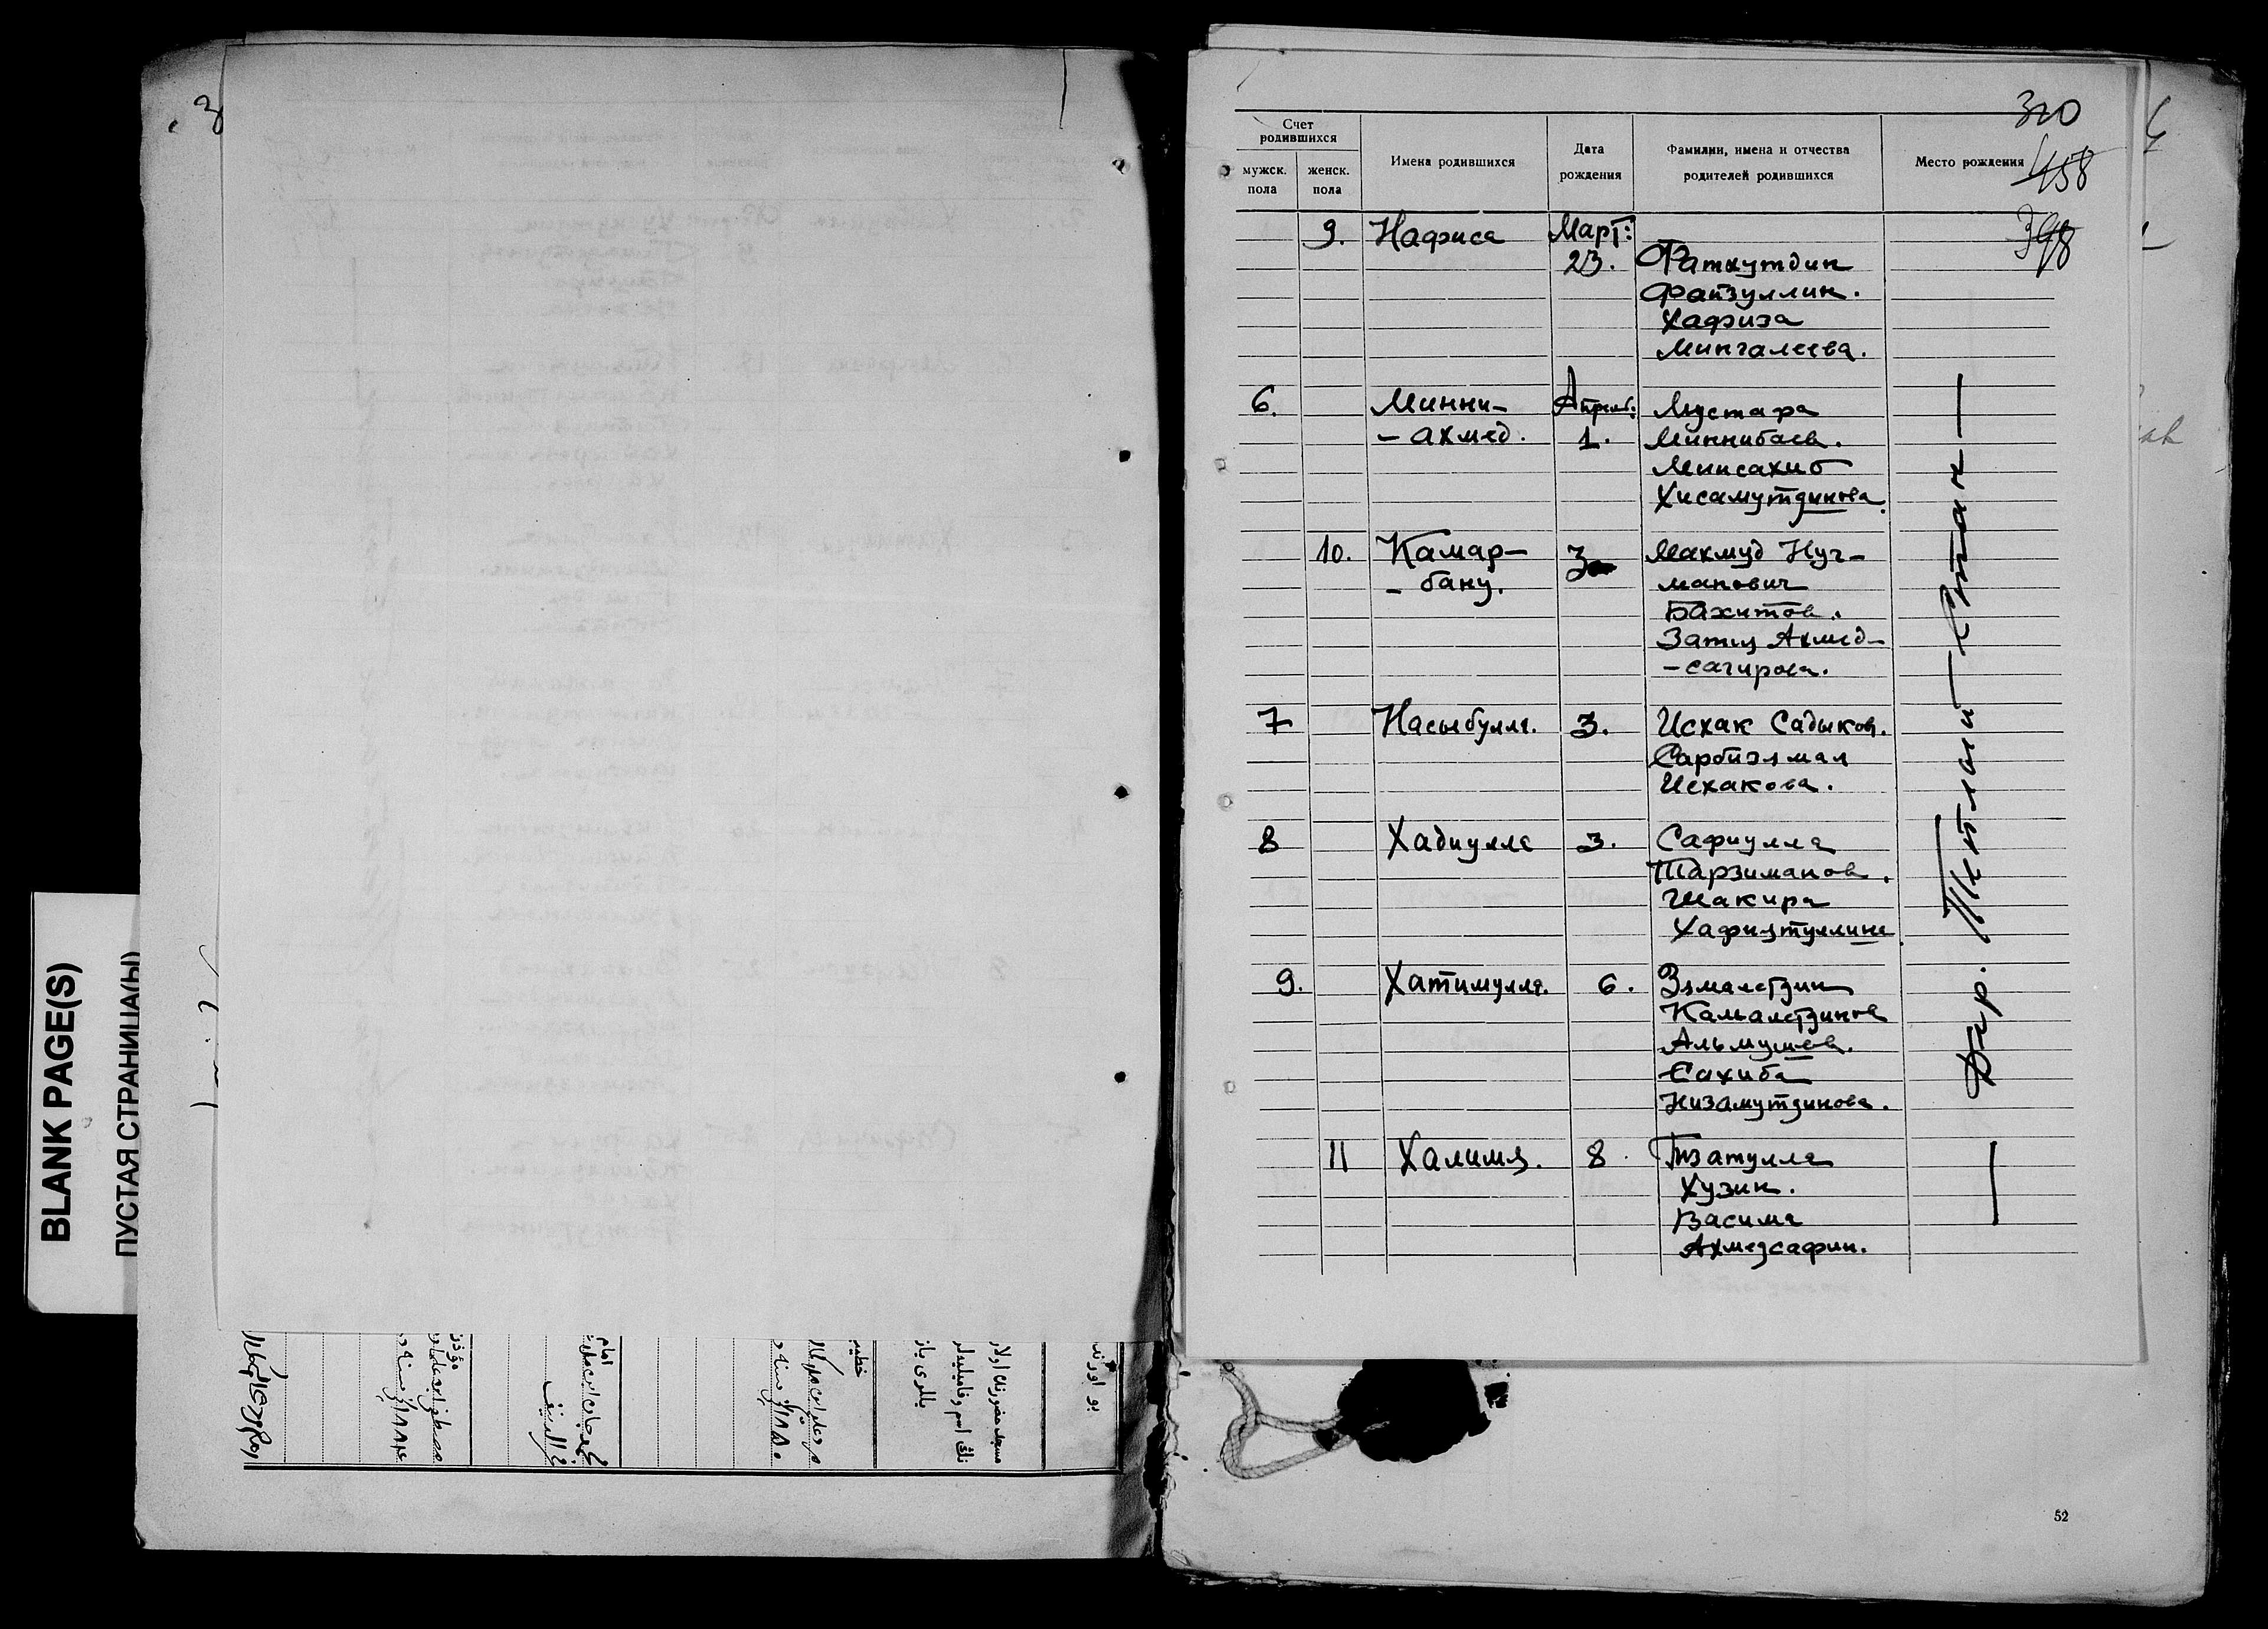 BLANK PAGE(S)
ПУСТАЯ СТРАНИЦА(Ы)
320
458
398
Счет родившихся
мужск. пола
женск. пола
Имена родившихся
Дата рождения
Фамилии, имена и отчества родителей родившихся
Место рождения
9. Нафиса Март:
23. Фатхутдин
Фатзуллин.
Хафиза
Мингалеева.
6. Минни- Апрель: Мустафа
-ахмед. 1. Миннибаев.
Минсахиб
Хисамутдинова.
10. Камар- 3 Махмуд Нуг-
-бану. манович
Бахитов.
Затия Ахмед-
-сагирова.
7 Насыбулла. 3. Исхак Садыков.
Сарбиямал
Исхакова.
8 Хадиулла 3. Сафиулла
Тарзиманов.
Шакира
Хафизтуллина
9. Хатимулла. 6. Зямалетдин
Камалетдинов
Альмушев.
Сахиба
Низамутдинова.
11 Халимя. 8. Гизатулла
Хузин.
Васима
Ахмедсафин.
Дер.
52